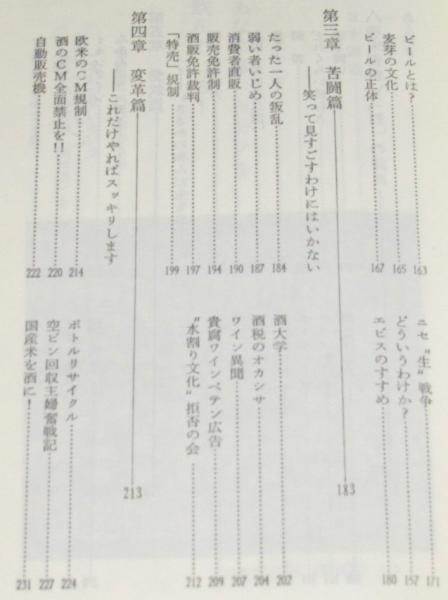 ビールとは?……163
麦芽の文化……165
ビールの正体……167
ニセ“生”戦争……171
どういうわけか?……157
エビスのすすめ……180
第三章 苦闘篇 183
——笑って見すごすわけにはいかない
たった一人の叛乱……184
弱い者いじめ……187
消費者直販……190
販売免許制……194
酒販免許裁判……197
「特売」規制……199
酒大学……202
酒税のオカシサ……204
ワイン異聞……207
貴腐ワインペテン広告……209
“水割り文化”拒否の会……212
第四章 変革篇 213
——これだけやればスッキリします
欧米のCM規制……214
酒のCM全面禁止を!!……220
自動販売機……222
ボトルリサイクル……224
空ビン回収主婦奮戦記……227
国産米を酒に!……231